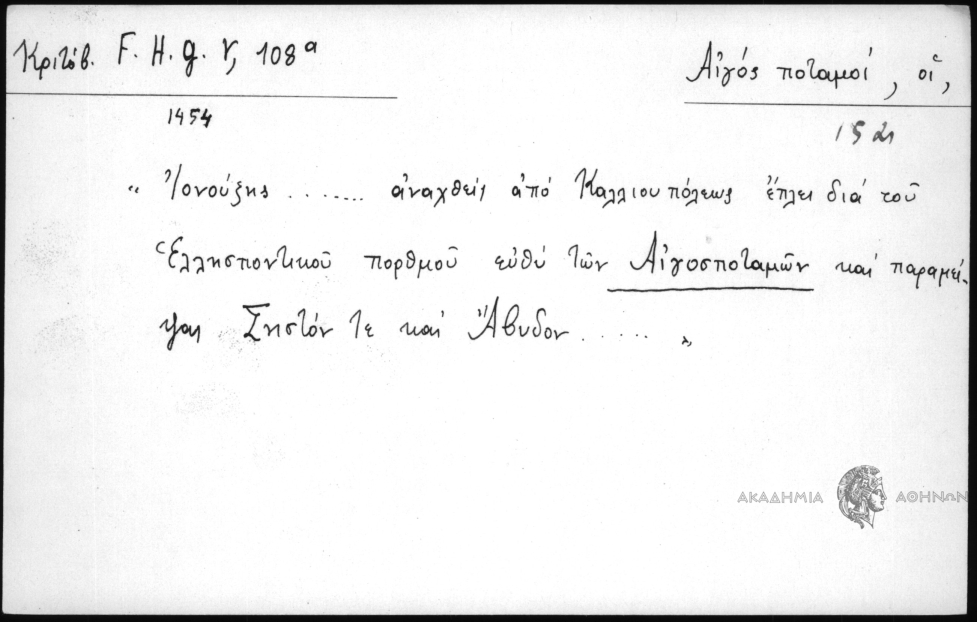 Κριτόβ. F. H. g. V, 108ᵃ
Αἰγός ποταμοί, οἱ,
1454
152
« Ἰονούξης ........ ἀναχθείς ἀπό Καλλιουπόλεως ἔπλει διά τοῦ
Ἑλλησποντικοῦ πορθμοῦ εὐθύ τῶν Αἰγοσποταμῶν καί παραμεί-
ψας Σηστόν τε καί Ἄβυδον ...... »
ΑΚΑΔΗΜΙΑ ΑΘΗΝΩΝ